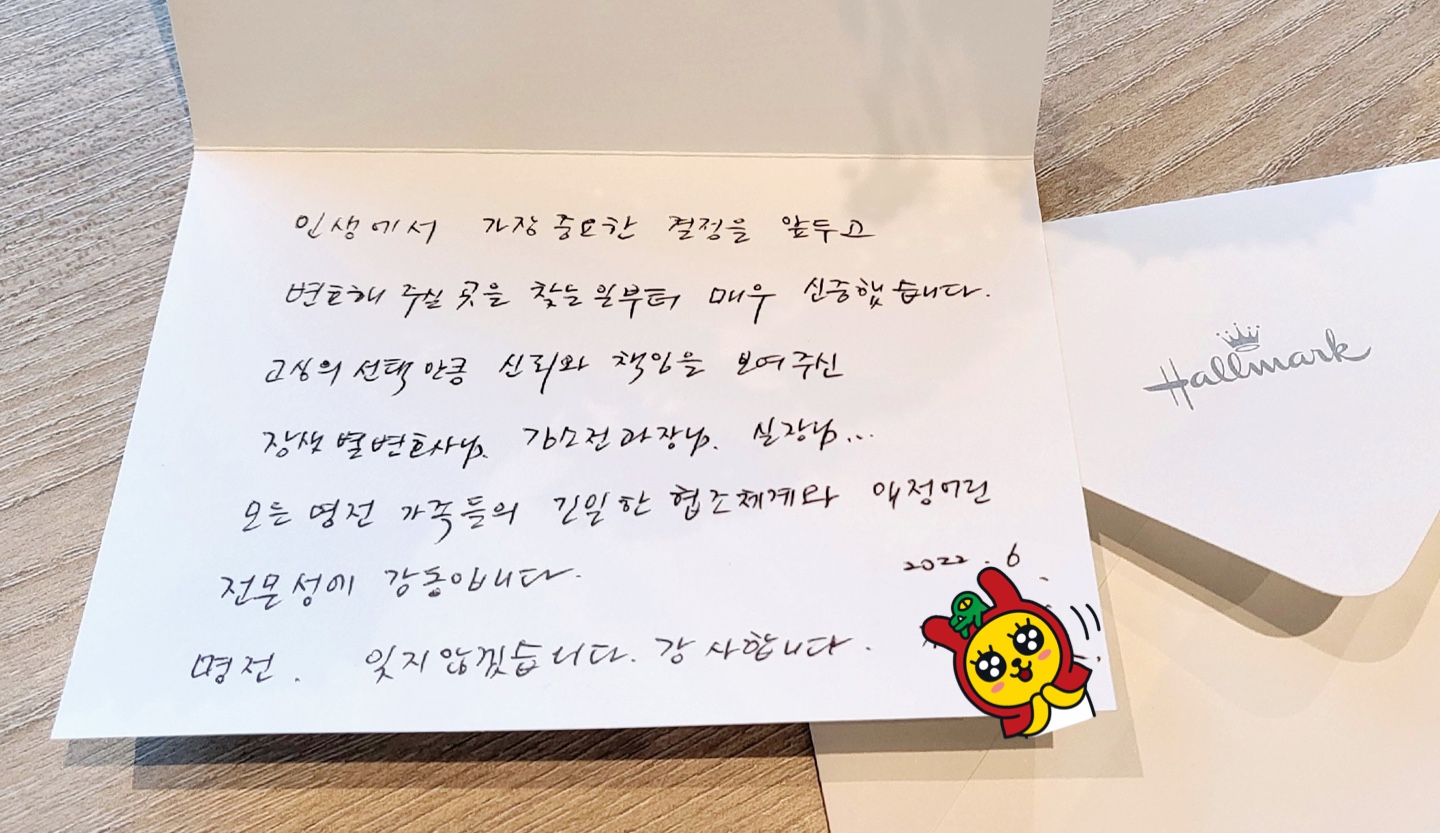 인생에서 가장 중요한 결정을 앞두고
변호해 주실 곳을 찾는 일부터 매우 신중했습니다.
고심의 선택만큼 신뢰와 책임을 보여주신
장샛별변호사님. 김소전과장님. 실장님...
모든 명전 가족들의 긴밀한 협조체계와 애정어린
전문성에 감동입니다.
2022. 6
명전. 잊지 않겠습니다. 감사합니다.
Hallmark